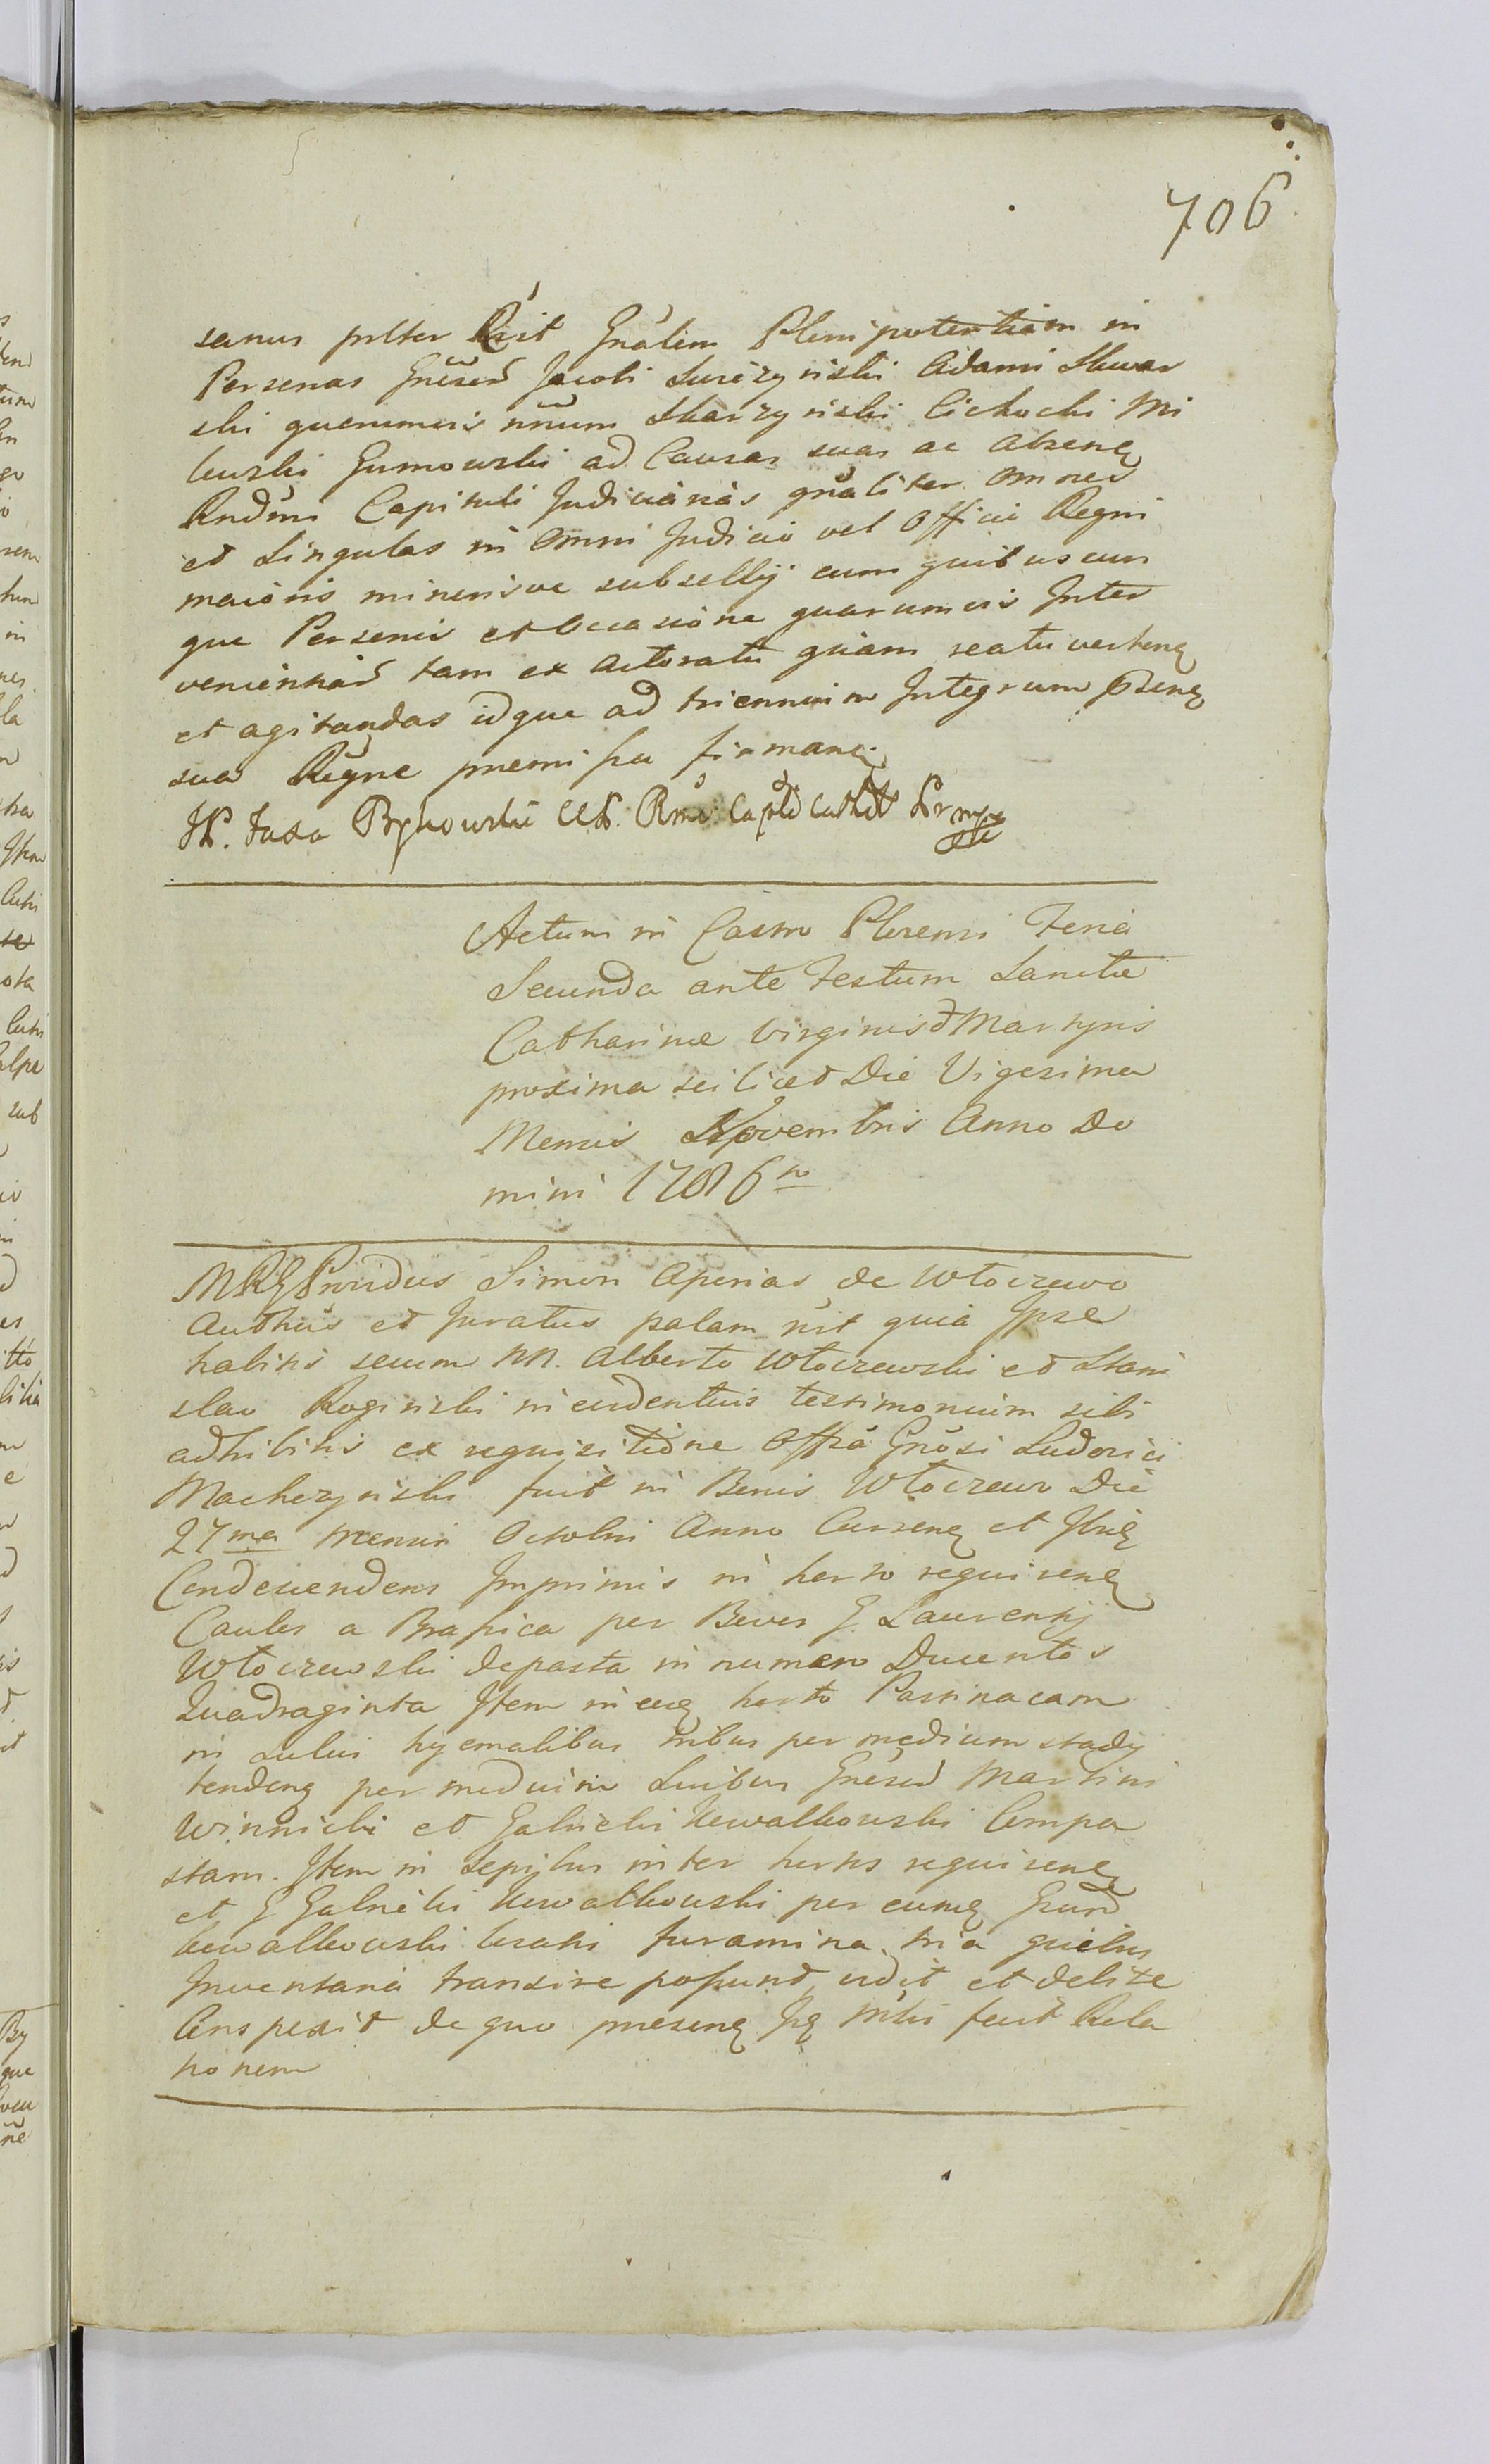 706
sanus prlter Rcit Gnalem Plenipotentiam in
Personas Gnesord Jacobi Surczynski Adami Skwar
ski quorumvis nrum Skarzynski Cichocki Mi
lewski Gumowski ad Causas suas ac absenq
Rndmi Capituli Judiciarias gnaliter omnes
et singulas in omni Judicio vel Officio Regni
maioris minorisve subsellij cum quibuscun
que Personis et Occasione quarumvis Inter
venientiard tam ex Actoratu quam reatu vertenq
et agitandas idque ad triennium Integrum
sua Rgne premissa firmanq
Jaxa Bykowski
Actum in Castro Plocensi Feria
Secunda ante Festum Sanctæ
Catharinæ Virginis & Martyris
proxima scilicet Die Vigesima
Mensis Novembris Anno Do
mini 1786to
Providus Simon Aperias de Włoczewo
Authus et Juratus palam rcit quia Ipse
habitis secum NN. Alberto Włoczewski et Stani
slao Roginski in evidentius testimonium sibi
adhibitis ex requisitione Offsa Gnosi Ludovici
Macherzynski fuit in Bonis Włoczewo Die
27ma mensis Octobris Anno Currenq et Ibiq
Condescendens Imprimis in horto requirenq
Caules a Brassica per Boves G. Laurentij
Włoczewski depasta in numero Ducentos
Quadraginta Item in eoq horto Pastinacam
in sulcis hyemalibus tribus per medium stadij
tendenq per medium Suibus Gnesord Martini
Winnicki et Gabrielis Kowalkowski Compa
stam. Item in sepibus inter hortos requirenq
et G Gabrielis Kowalkowski per eumq Gnord
Kowalkowski locatis foramina tria quibus
Inventaria transire possunt vidit et debite
Conspexit de quo presenq Iq Mtri fecit Rela
tionem